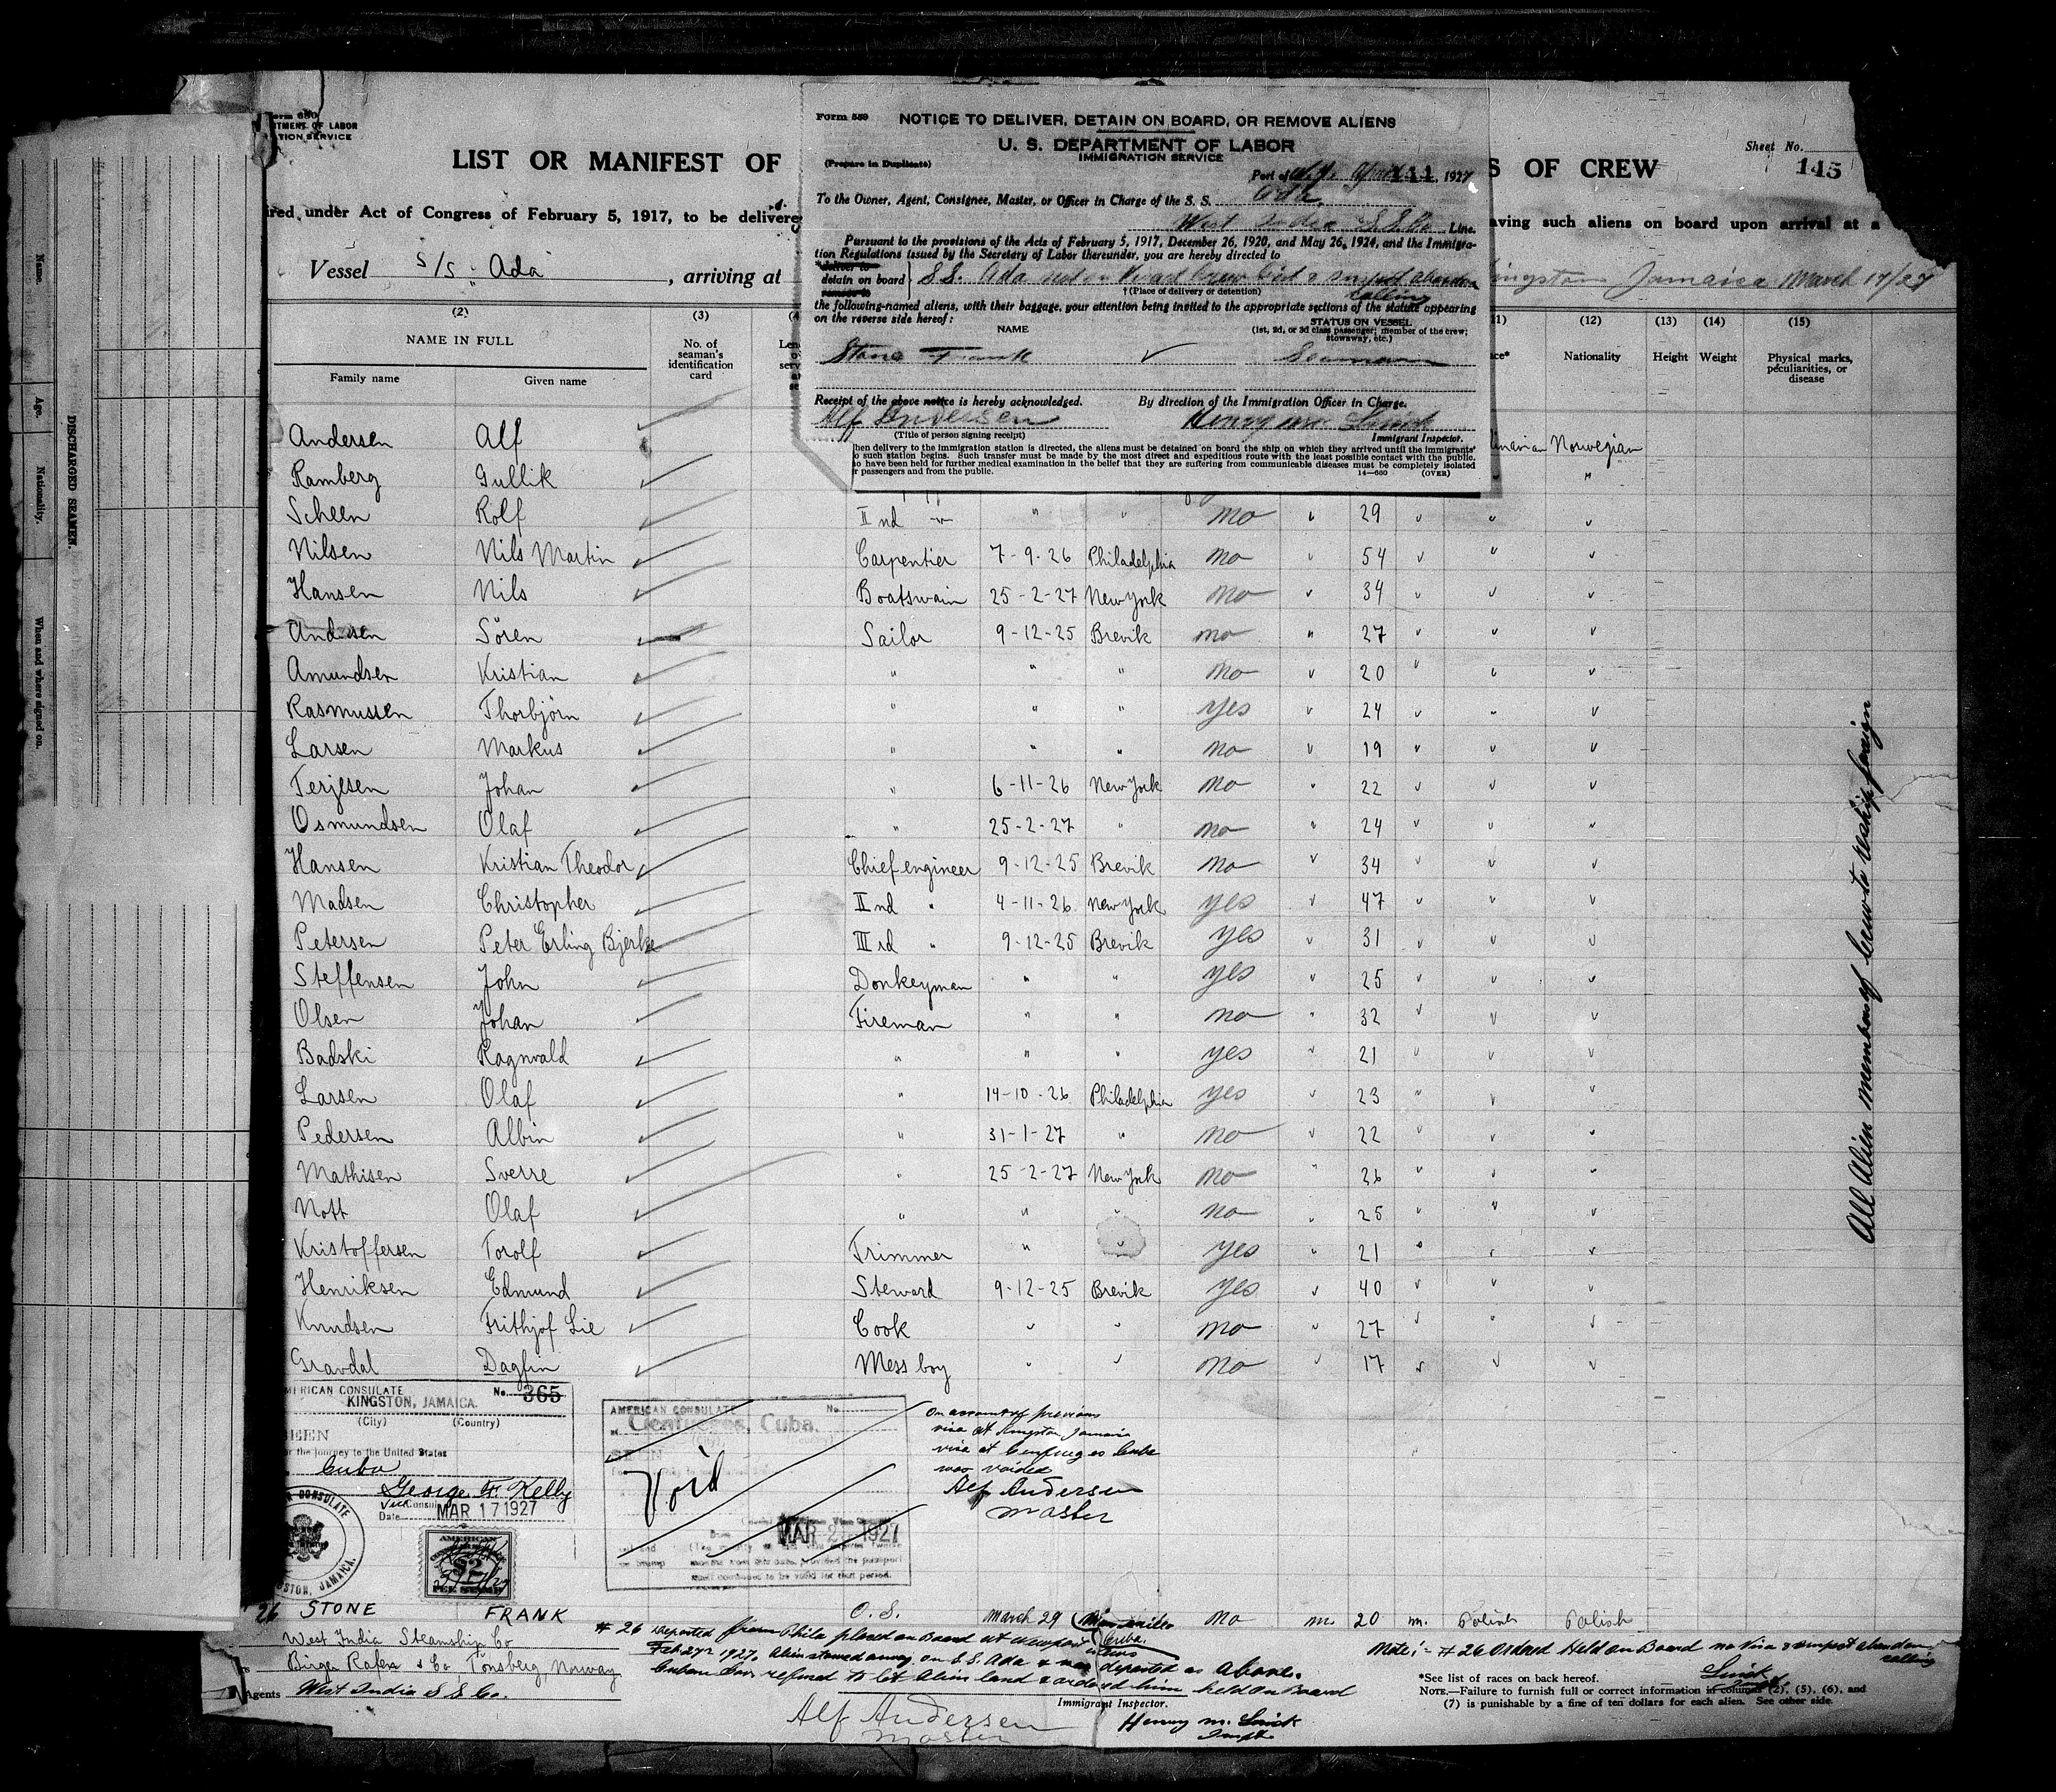 Form 680
TMENT OF LABOR
TION SERVICE
Form 559
NOTICE TO DELIVER, DETAIN ON BOARD, OR REMOVE ALIENS
U. S. DEPARTMENT OF LABOR
IMMIGRATION SERVICE
(Prepare in Duplicate)
Port of N.Y. April 1927
To the Owner, Agent, Consignee, Master, or Officer in Charge of the S. S. Ada
West India S.S. Co. Line.
Pursuant to the provisions of the Acts of February 5, 1917, December 26, 1920, and May 26, 1924, and the Immigra-
tion Regulations issued by the Secretary of Labor thereunder, you are hereby directed to
deliver to
detain on board S.S. Ada not on visaed crew list & suspect abandon
remove to
† (Place of delivery or detention)
calling
the following-named aliens, with their baggage, your attention being invited to the appropriate sections of the statute appearing
on the reverse side hereof:
NAME
STATUS ON VESSEL
(1st, 2d, or 3d class passenger; member of the crew;
stowaway, etc.)
Stone Frank ✓ Seaman
Receipt of the above notice is hereby acknowledged. By direction of the Immigration Officer in Charge.
Alf Andersen Henry M. Smick
(Title of person signing receipt) Immigrant Inspector.
hen delivery to the immigration station is directed, the aliens must be detained on board the ship on which they arrived until the immigrants'
o such station begins. Such transfer must be made by the most direct and expeditious route with the least possible contact with the public.
o have been held for further medical examination in the belief that they are suffering from communicable diseases must be completely isolated
r passengers and from the public. 14—660 (OVER)
LIST OR MANIFEST OF S OF CREW
Sheet No.
145
ired under Act of Congress of February 5, 1917, to be delivere aving such aliens on board upon arrival at a
Vessel S/S "Ada", arriving at ingston Jamaica March 17/27
(2) (3) (4 11) (12) (13) (14) (15)
NAME IN FULL
Family name Given name
No. of seaman's identification card
Nationality Height Weight Physical marks, peculiarities, or disease
Andersen Alf Norwegian
Ramberg Gullik "
Scheen Rolf IInd " " " no " 29 " " "
Nilsen Nils Martin Carpentier 7-9-26 Philadelphia no " 54 " " "
Hansen Nils Boatswain 25-2-27 New York no " 34 " " "
Andersen Sören Sailor 9-12-25 Brevik no " 27 " " "
Amundsen Kristian " " " no " 20 " " "
Rasmussen Thorbjörn " " " yes " 24 " " "
Larsen Markus " " " no " 19 " " "
Terjesen Johan " 6-11-26 New York no " 22 " " "
Osmundsen Olaf " 25-2-27 " no " 24 " " "
Hansen Kristian Theodor Chief engineer 9-12-25 Brevik no " 34 " " "
Madsen Christopher IInd " 4-11-26 New York yes " 47 " " "
Petersen Peter Erling Bjerke IIIrd " 9-12-25 Brevik yes " 31 " " "
Steffensen John Donkeyman " " yes " 25 " " "
Olsen Johan Fireman " " no " 32 " " "
Badski Ragnvald " " " yes " 21 " " "
Larsen Olaf " 14-10-26 Philadelphia yes " 23 " " "
Pedersen Albin " 31-1-27 " no " 22 " " "
Mathisen Sverre " 25-2-27 New York no " 26 " " "
Nott Olaf " " " no " 25 " " "
Kristoffersen Torolf Trimmer " " yes " 21 " " "
Henriksen Edmund Steward 9-12-25 Brevik yes " 40 " " "
Knudsen Frithjof Lie Cook " " no " 27 " " "
Gravdal Dagfin Mess boy " " no " 17 " " "
All Alien members of crew to reship foreign
MERICAN CONSULATE No. 365
KINGSTON, JAMAICA.
(City) (Country)
SEEN
or the journey to the United States
Cuba
George H. Kelly
Vice Consul
Date MAR 17 1927
CONSULATE
STON, JAMAICA.
AMERICAN
$2
FEE STAMP
AMERICAN CONSULATE No.
Cienfuegos, Cuba.
SEEN
Void
MAR 2 1927
months from this date, provided the passport
shall continue to be valid for that period.
On account of previous
visa at Kingston Jamaica
visa at Cienfuegos Cuba
was voided
Alf Andersen
Master
26 STONE FRANK O.S. March 29 Manzanillo Cuba no m. 20 m. Polish Polish
# 26 Deported from Phila placed on Board at Newport News
Feb 27th 1927. Alien stowed away on S.S. Ada & was deported as above.
Cuban Gov refused to let Alien land & ordered him held on Board
Note:- #26 Ordered Held on Board no Visa & suspect abandon
calling
Smick
West India Steamship Co
Birger Rafen & Co, Tönsberg, Norway
Agents West India S S Co.
Alf Andersen
Master
Immigrant Inspector.
Henry M. Smick
Inspt.
*See list of races on back hereof.
NOTE.—Failure to furnish full or correct information in columns (2), (5), (6), and
(7) is punishable by a fine of ten dollars for each alien. See other side.
DISCHARGED SEAMEN.
Name.
Age.
Nationality.
When and where signed on.